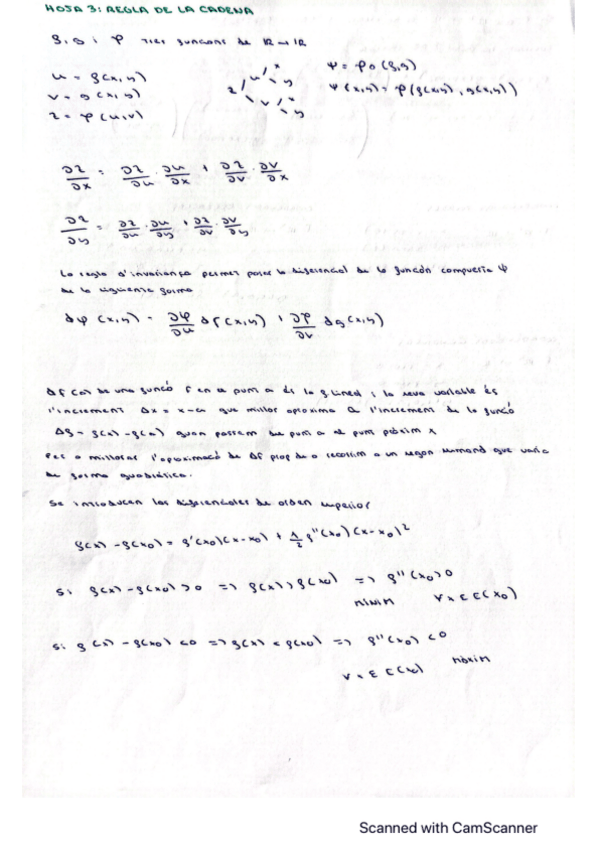 HOJA 3: REGLA DE LA CADENA
f, g i φ tres funcions de R → R
u = f(x,y)
v = g(x,y)
z = φ(u,v)
z u x y v x y
Ψ = φ o (f,g)
Ψ(x,y) = φ(f(x,y), g(x,y))
∂z/∂x = ∂z/∂u · ∂u/∂x + ∂z/∂v · ∂v/∂x
∂z/∂y = ∂z/∂u · ∂u/∂y + ∂z/∂v · ∂v/∂y
La regla d'invariança permet posar la diferencial de la funcón compuerta Ψ
de la siguiente forma
dφ(x,y) = ∂φ/∂u df(x,y) + ∂φ/∂v dg(x,y)
de una funcó f en a punt a és la lineal i la seva variable és
l'increment Δx = x-a que millor aproxima a l'increment de la funcó
Δf = f(x) - f(a) quan passem de punt a al punt pròxim x
Per a millorar l'aproximacó de Δf prop de a recorrim a un segon sumand que varia
de forma quadràtica.
Se introducen las diferenciales de orden superior
f(x) - f(x0) = f'(x0)(x-x0) + 1/2 f''(x0)(x-x0)²
si f(x) - f(x0) > 0 => f(x) > f(x0) => f''(x0) > 0
mínim ∀x ∈ E(x0)
si f(x) - f(x0) < 0 => f(x) < f(x0) => f''(x0) < 0
∀x ∈ E(x0) màxim
Scanned with CamScanner